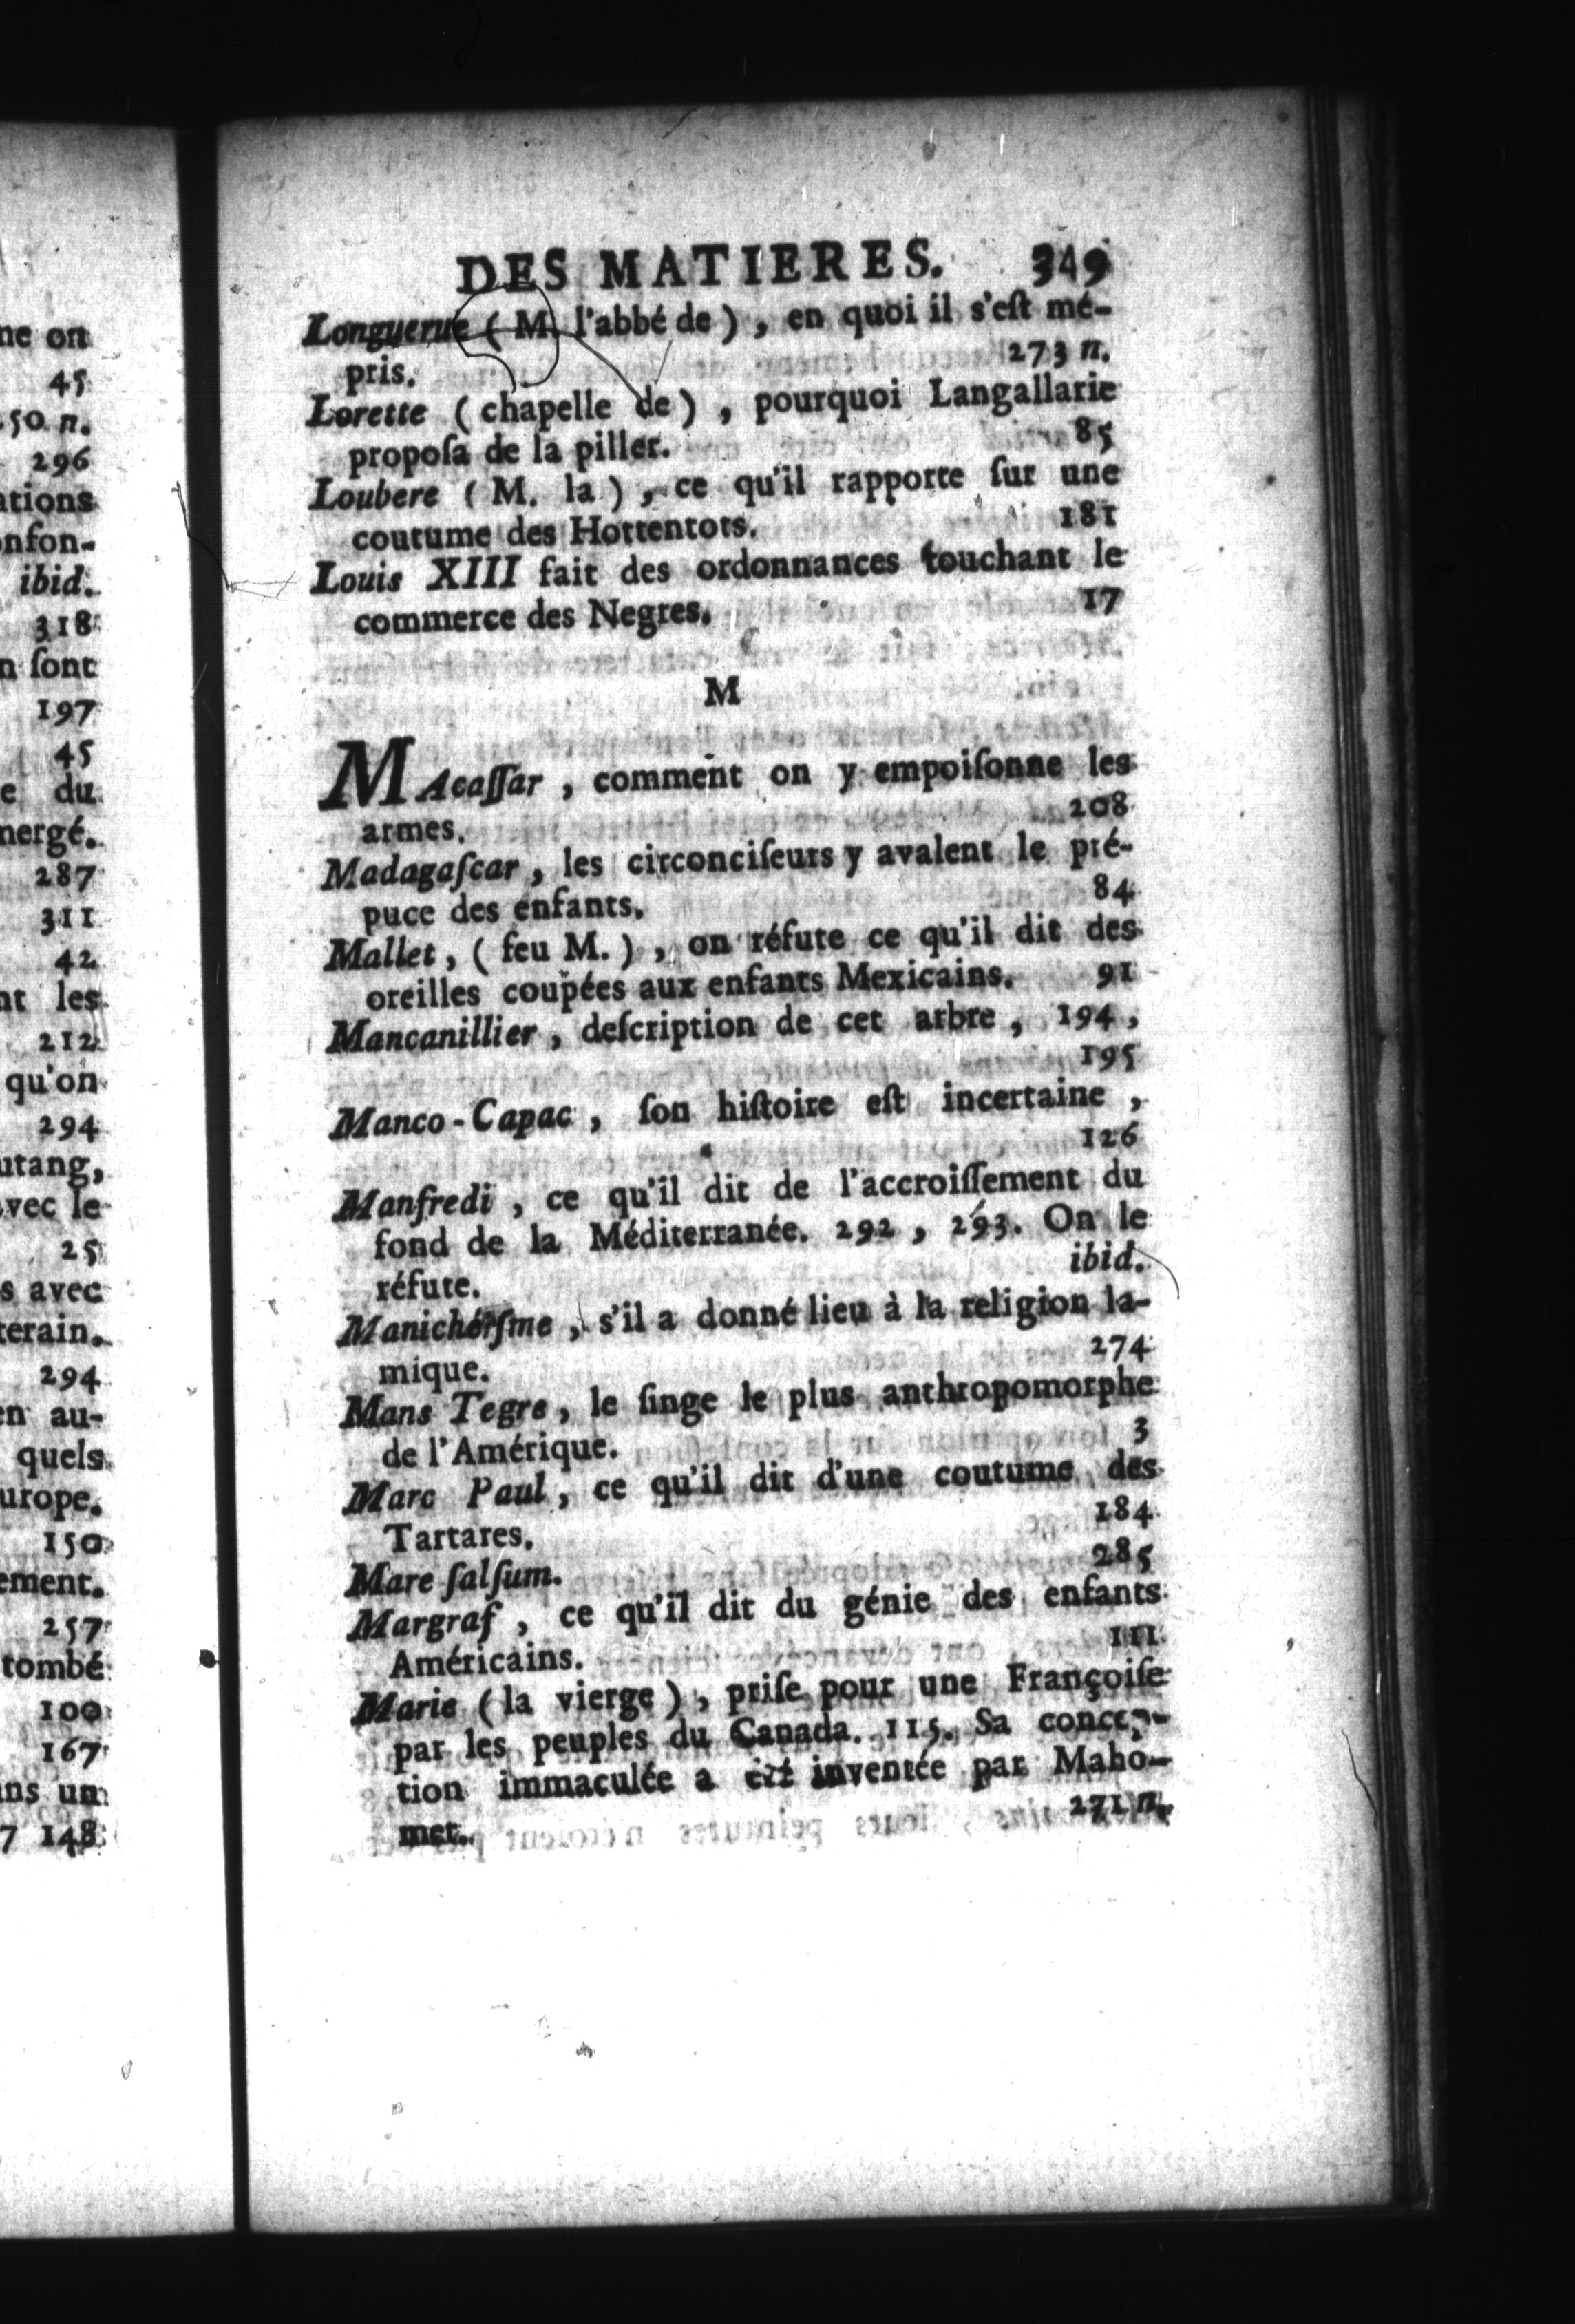 ne on
45
50 n.
296
ations
onfon-
ibid.
318
n ſont
197
45
e du
nergé.
287
311
42
nt les
212
qu'on
294
utang,
avec le
25
s avec
terain.
294
en au-
quels
urope.
150
ement.
257
tombé
100
167
ans un
7 148
DES MATIERES. 349
Longuerue (M. l'abbé de), en quoi il s'eſt mé-
pris. 273 n.
Lorette (chapelle de), pourquoi Langallarie
propoſa de la piller. 85
Loubere (M. la), ce qu'il rapporte ſur une
coutume des Hottentots. 181
Louis XIII fait des ordonnances touchant le
commerce des Negres. 17
M
MAcaſſar, comment on y empoiſonne les
armes. 208
Madagaſcar, les circonciſeurs y avalent le pré-
puce des enfants. 84
Mallet, (feu M.), on réfute ce qu'il dit des
oreilles coupées aux enfants Mexicains. 91
Mancanillier, deſcription de cet arbre, 194,
195
Manco-Capac, ſon hiſtoire eſt incertaine,
126
Manfredi, ce qu'il dit de l'accroiſſement du
fond de la Méditerranée. 292, 293. On le
réfute. ibid.
Manichéiſme, s'il a donné lieu à la religion la-
mique. 274
Mans Tegre, le ſinge le plus anthropomorphe
de l'Amérique. 3
Marc Paul, ce qu'il dit d'une coutume des
Tartares. 184
Mare ſalſum. 285
Margraf, ce qu'il dit du génie des enfants
Américains. 111
Marie (la vierge), priſe pour une Françoiſe
par les peuples du Canada. 115. Sa concep-
tion immaculée a été inventée par Maho-
met. 271 n.